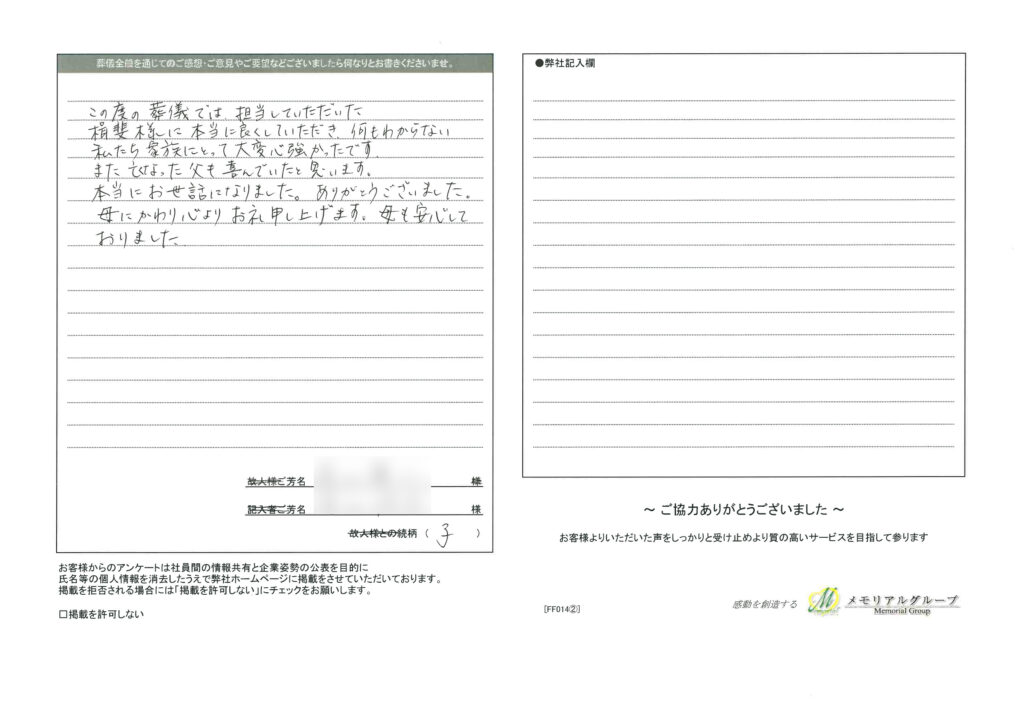 葬儀全般を通じてのご感想・ご意見やご要望などございましたら何なりとお書きくださいませ。
この度の葬儀では、担当していただいた
様に本当に良くしていただき、何もわからない
私たち家族にとって大変心強かったです。
また亡なった父も喜んでいたと思います。
本当にお世話になりました。ありがとうございました。
母にかわり心よりお礼申し上げます。母も安心して
おりました
故人様ご芳名 様
記入者ご芳名 様
故人様との続柄 ( 子 )
お客様からのアンケートは社員間の情報共有と企業姿勢の公表を目的に
氏名等の個人情報を消去したうえで弊社ホームページに掲載をさせていただいております。
掲載を拒否される場合には「掲載を許可しない」にチェックをお願いします。
□掲載を許可しない
●弊社記入欄
～ ご協力ありがとうございました ～
お客様よりいただいた声をしっかりと受け止めより質の高いサービスを目指して参ります
[FF014②]
感動を創造する
メモリアルグループ
Memorial Group